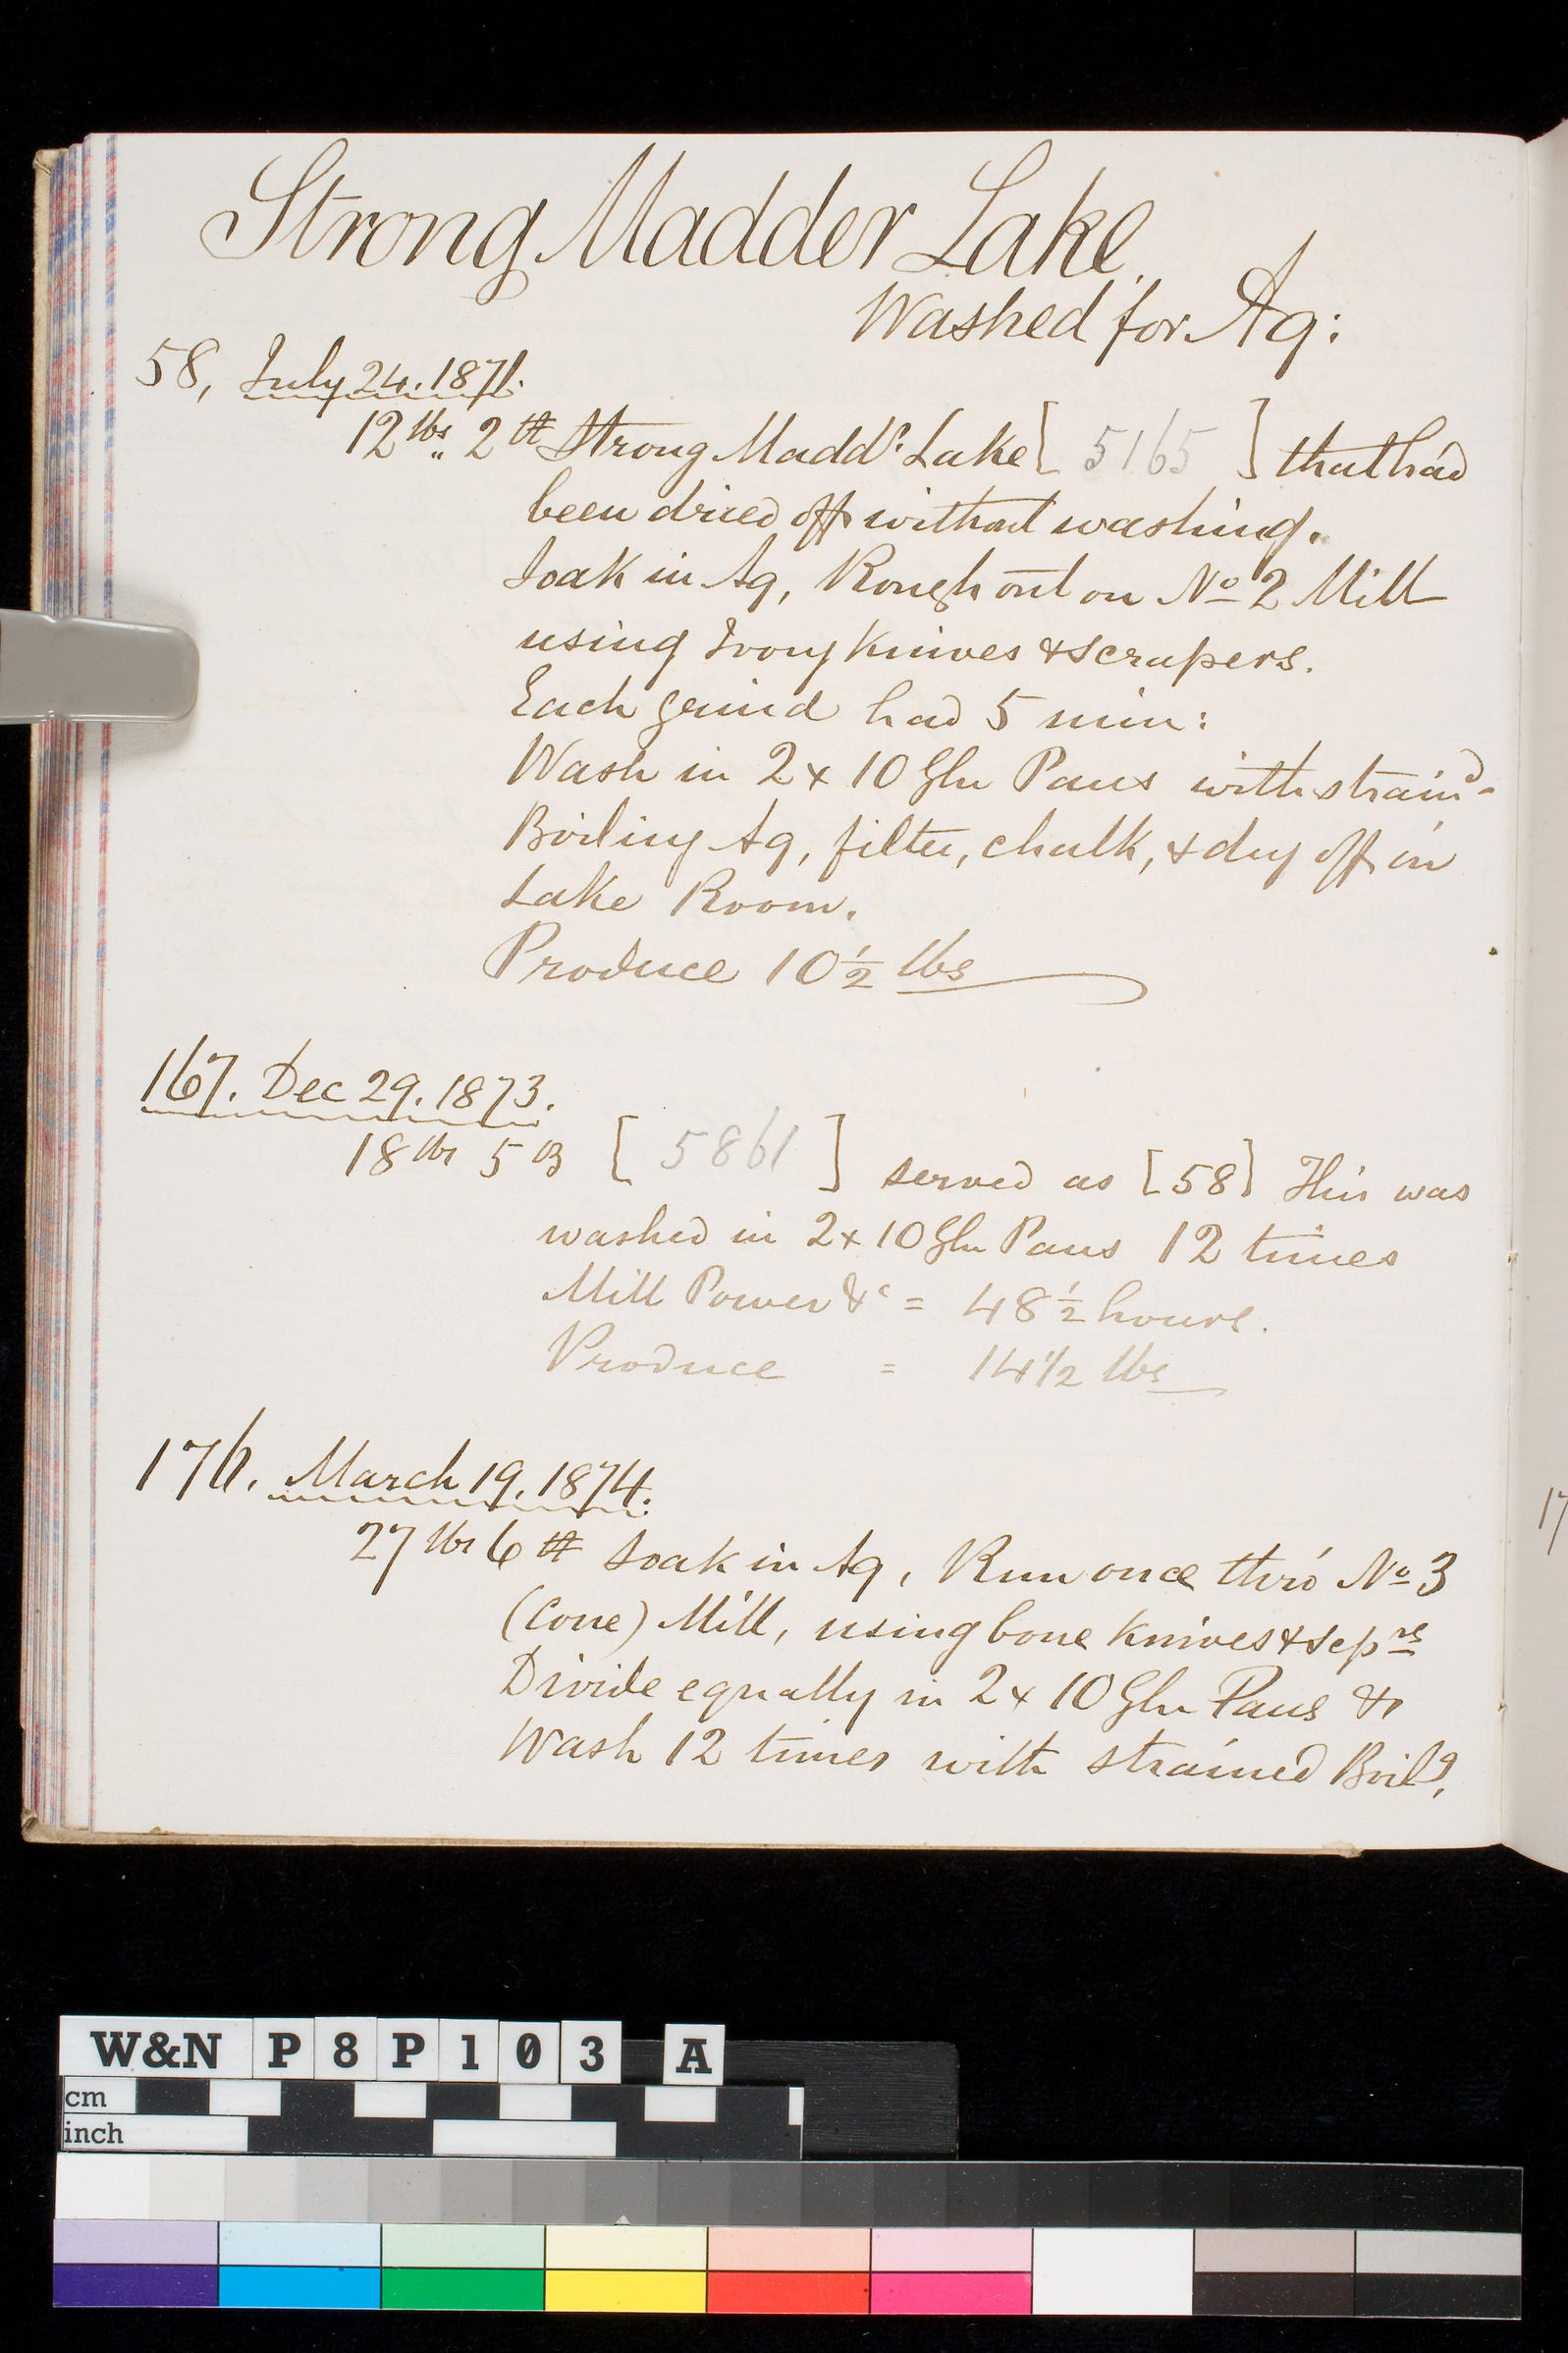 Strong Madder Lake.
Washed for Aq:
58, July 24. 1871.
12 lbs. 2 ℔ Strong Maddr. Lake [ 5165 ] that had
been dried off without washing.
Soak in Aq, Rough out on No 2 Mill
using Ivory Knives & scrapers.
Each grind had 5 min:
Wash in 2 x 10 Gln Pans with straind.
Boiling Aq, filter, chalk, & dry off in
Lake Room.
Produce 10 1/2 lbs
167. Dec 29. 1873.
18 lbs 5 [ 5861 ] served as [58] This was
washed in 2 x 10 Gln Pans 12 times
Mill Power &c = 48 1/2 hours.
Produce = 14 1/2 lbs
176. March 19. 1874.
27 lbs 6 ℔ Soak in Aq, Run once thro' No 3
(Cone) Mill, using bone Knives & scprs
Divide equally in 2 x 10 Gln Pans &
Wash 12 times with strained Boilg,
17
W&N P8P103 A
cm
inch